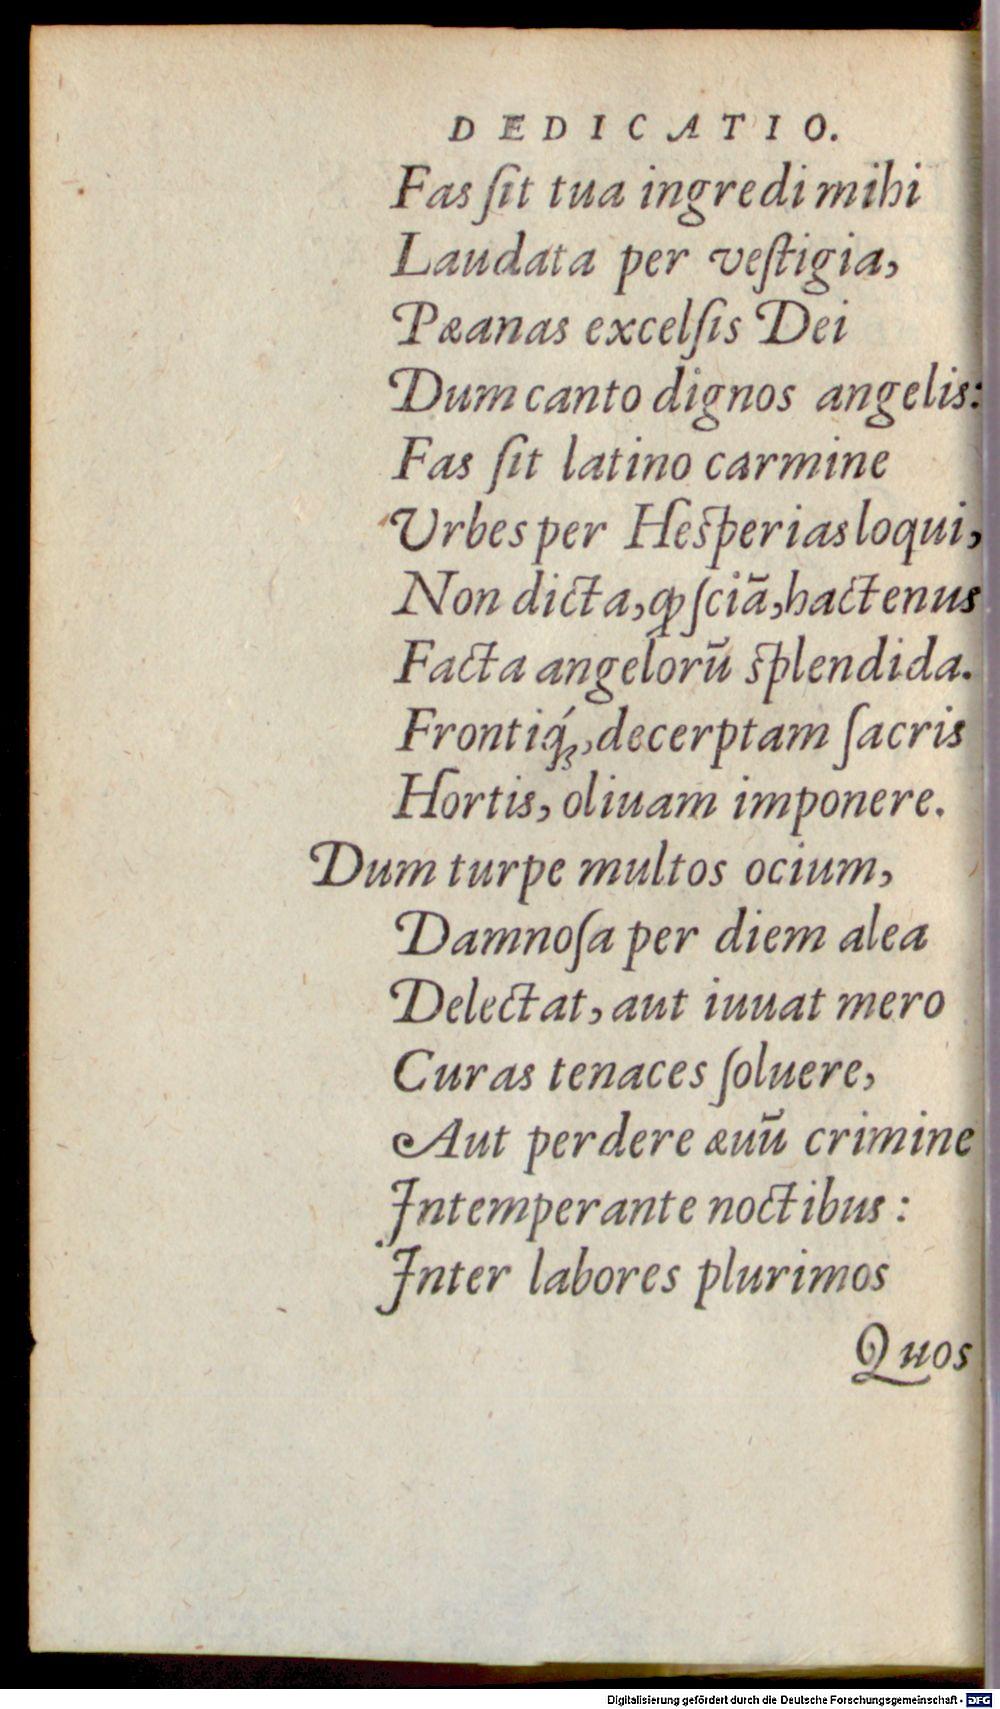 DEDICATIO.
Fas ſit tua ingredi mihi
Laudata per veſtigia,
Pæanas excelſis Dei
Dum canto dignos angelis:
Fas ſit latino carmine
Vrbes per Heſperias loqui,
Non dicta, ꝙ ſciã, hactenus
Facta angelorũ ſplendida.
Frontiq́ꝫ, decerptam ſacris
Hortis, oliuam imponere.
Dum turpe multos ocium,
Damnoſa per diem alea
Delectat, aut iuuat mero
Curas tenaces ſoluere,
Aut perdere æuũ crimine
Intemperante noctibus:
Inter labores plurimos
Quos
Digitalisierung gefördert durch die Deutsche Forschungsgemeinschaft - DFG